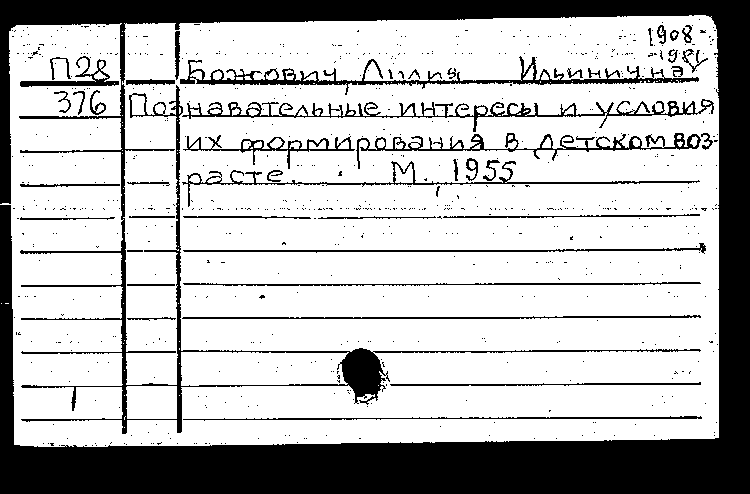 1908-
-1981
П28 Божович, Лидия Ильинична
376 Познавательные интересы и условия
их формирования в детском воз-
расте. М., 1955